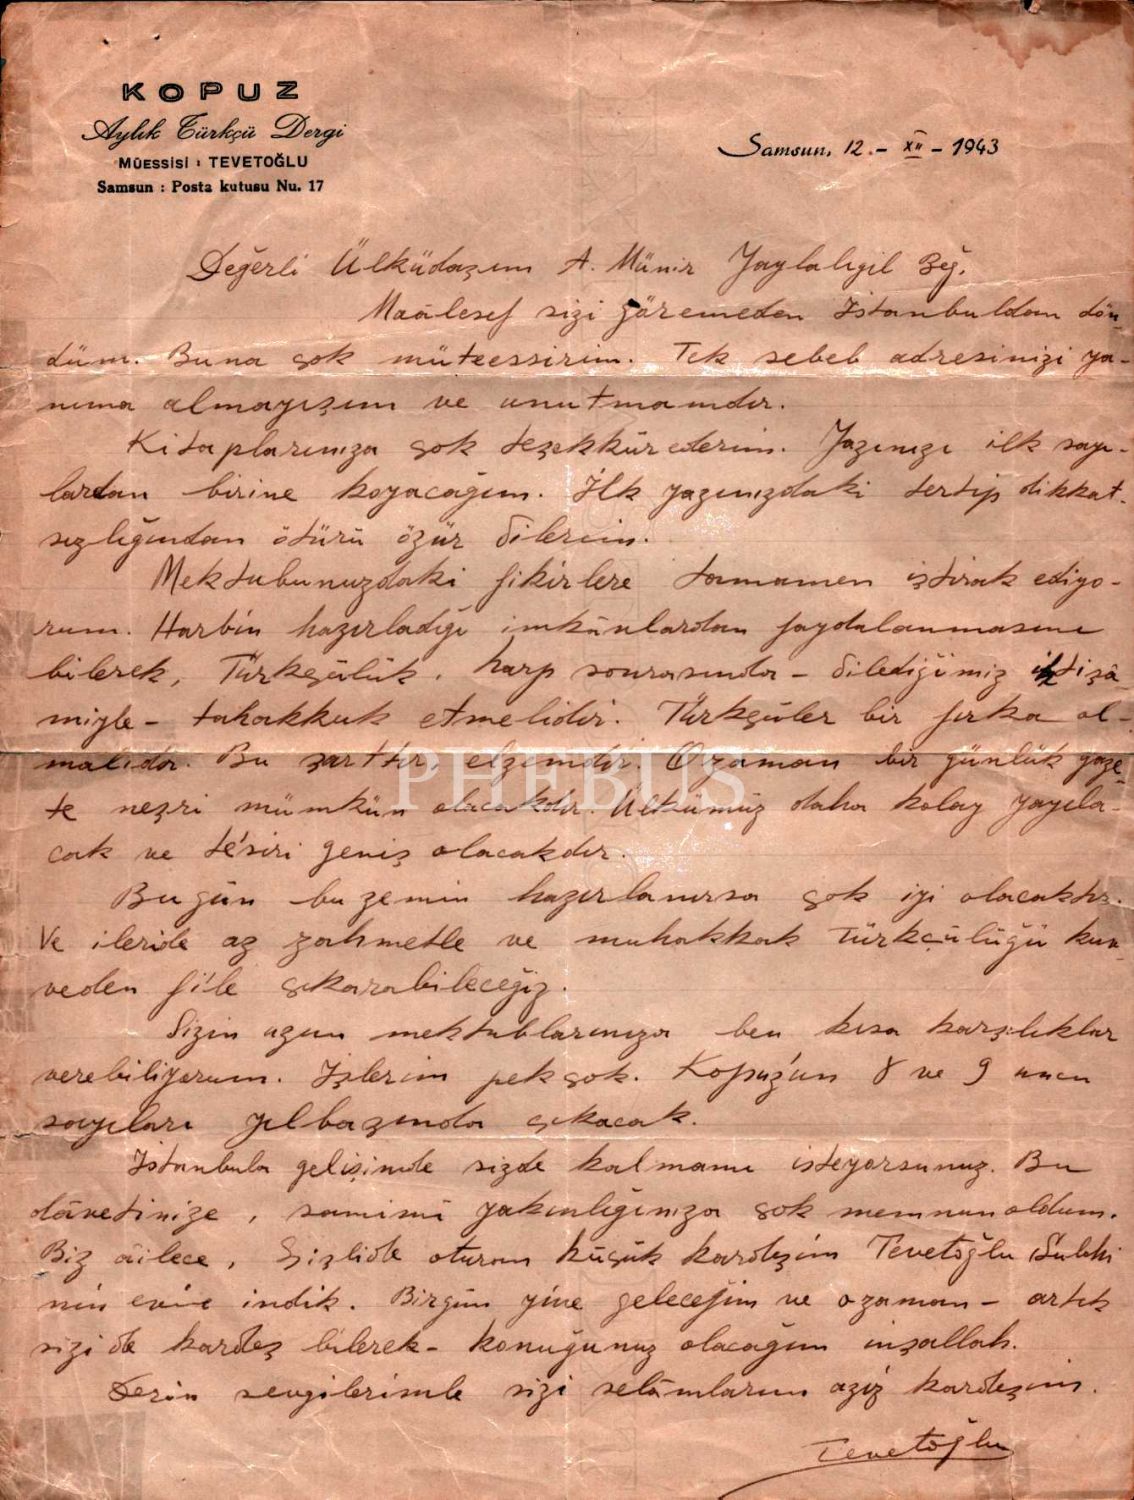 KOPUZ
Aylık Türkçü Dergi
MÜESSİSİ : TEVETOĞLU
Samsun : Posta kutusu Nu. 17
Samsun, 12.- XII - 1943
Değerli Ülküdaşım A. Münir Yaylalıgil Beğ.
Maâlesef sizi göremeden İstanbuldan dön-
düm. Buna çok müteessirim. Tek sebeb adresinizi ya-
nıma almayışım ve unutmamdır.
Kitaplarınıza çok teşekkür ederim. Yazınızı ilk sayı-
lardan birine koyacağım. İlk yazınızdaki tertip dikkat-
sızlığından ötürü özür dilerim.
Mektubunuzdaki fikirlere tamamen iştirak ediyo-
rum. Harbin hazırladığı imkânlardan faydalanmasını
bilerek, Türkçülük, harp sonrasında - dilediğimiz ihtişâ-
miyle - tahakkuk etmelidir. Türkçüler bir fırka ol-
malıdır. Bu şarttır, elzemdir. O zaman bir günlük gaze-
te neşri mümkün olacakdır. Ülkümüz daha kolay yayıla-
cak ve te'siri geniş olacakdır.
Bugün bu zemin hazırlanırsa çok iyi olacaktır.
Ve ileride az zahmetle ve muhakkak Türkçülüğü kuv-
veden fi'le çıkarabileceğiz.
Sizin uzun mektublarınıza ben kısa karşılıklar
verebiliyorum. İşlerim pek çok. Kopuz'un 8 ve 9 uncu
sayıları yılbaşında çıkacak.
İstanbula gelişimde sizde kalmamı isteyorsunuz. Bu
dâvetinize, samimî yakınlığınıza çok memnun oldum.
Biz âilece, Şişlide oturan küçük kardeşim Tevetoğlu Subhi
nin evine indik. Birgün yine geleceğim ve o zaman - artık
sizi de kardeş bilerek - konuğunuz olacağım inşallah.
Derin sevgilerimle sizi selâmlarım aziz kardeşim.
Tevetoğlu
PHEBUS